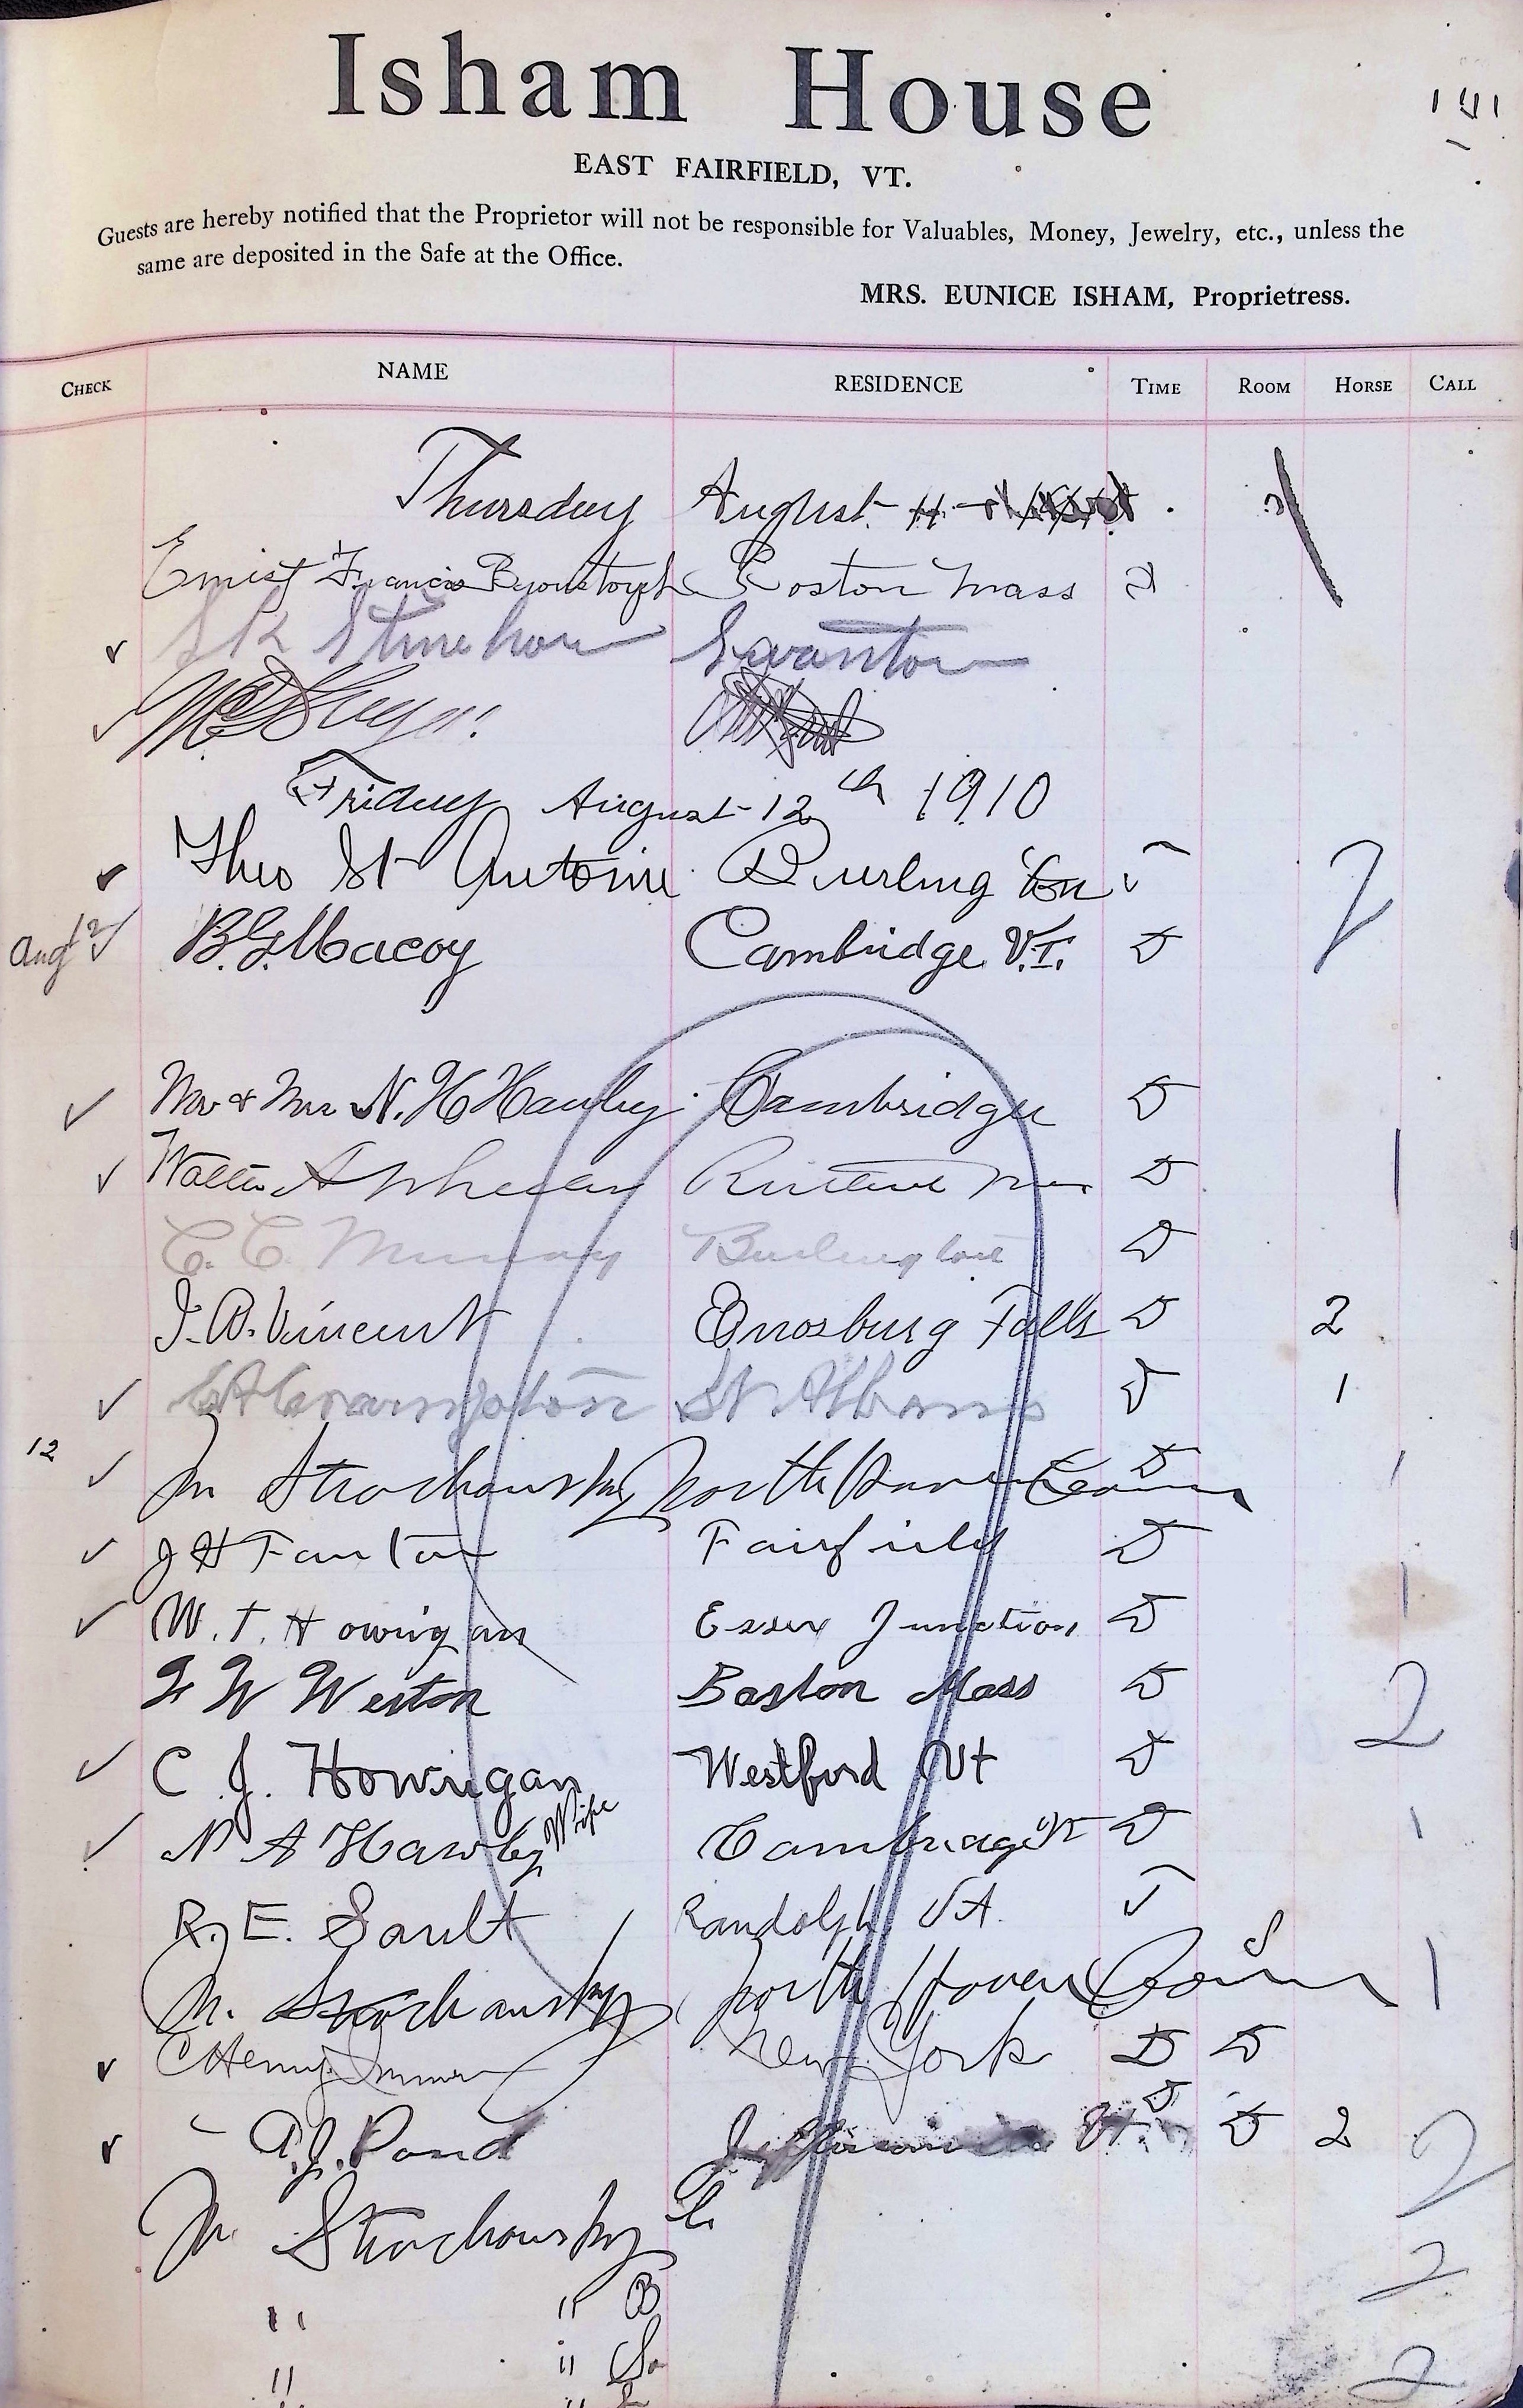 Isham House
141
EAST FAIRFIELD, VT.
Guests are hereby notified that the Proprietor will not be responsible for Valuables, Money, Jewelry, etc., unless the
same are deposited in the Safe at the Office.
MRS. EUNICE ISHAM, Proprietress.
CHECK NAME RESIDENCE TIME ROOM HORSE CALL
Thursday August 11
Francis Boston Mass
S K Stinehour Swanton
Friday August 12th 1910
Theo St Antoine Burlington
Aug 12 B.G. Macoy Cambridge V.T. D 2
Mr & Mrs N. H Hawley Cambridge D
Walter A Rutland D 1
C. C. Murray Burlington D
J. B. Vincent Enosburg Falls D 2
Crampton St Albans D 1
12 M Strochansky North Haven Conn D 1
J H Fanton Fairfield D
W. T. Howrigan Essex Junction D 1
F W Weston Boston Mass D 2
C J. Howrigan Westford Vt D
N A Hawley Wife Cambridge Vt D 1
R. E. Sault Randolph Vt.
M. Strochansky North Haven Conn S 1
C Henry New York D D
A. J. Pond Jeffersonville Vt. D D 2 2
M Strochansky L 2
" " B
" " So 2
" "